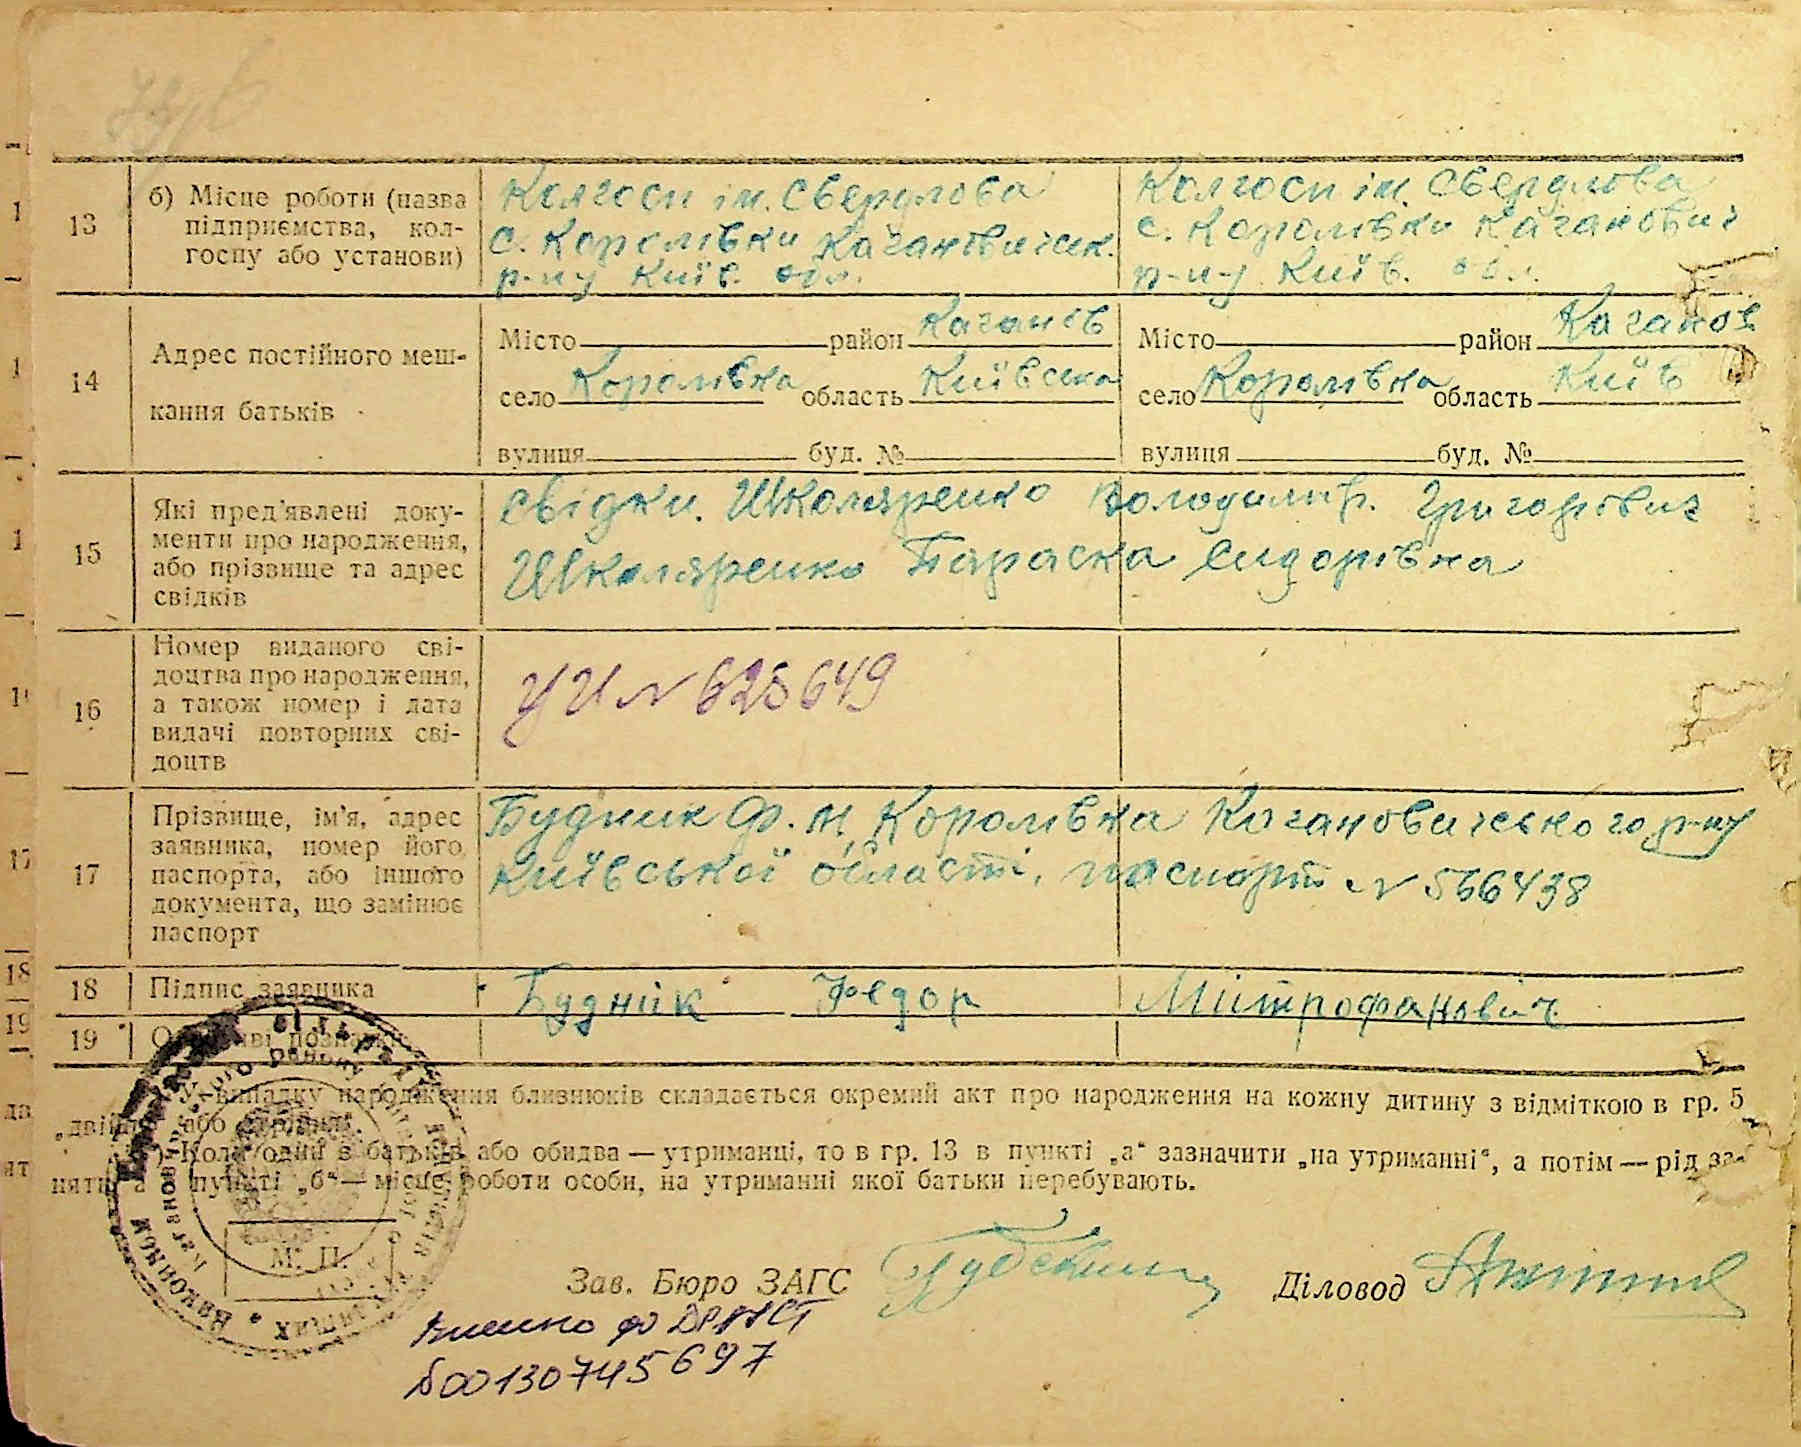 13
б) Місце роботи (назва
підприємства, кол-
госпу або установи)
Колгосп ім. Свердлова
с. Королівки Кагановичськ.
р-ну Київ. обл.
Колгосп ім. Свердлова
с. Королівки Каганович
р-ну Київ. обл.
14
Адрес постійного меш-
кання батьків
Місто район Каганов
село Королівка область Київська
вулиця буд. №
Місто район Каганов
село Королівка область Київ
вулиця буд. №
15
Які пред'явлені доку-
менти про народження,
або прізвище та адрес
свідків
Свідки. Школяренко Володимир. Григорович
Школяренко Параска Сидорівна
16
Номер виданого сві-
доцтва про народження,
а також номер і дата
видачі повторних сві-
доцтв
УИ № 625649
17
Прізвище, ім'я, адрес
заявника, номер його
паспорта, або іншого
документа, що замінює
паспорт
Будник Ф. М. Королівка Кагановичського р-ну
Київської області, паспорт № 566438
18
Підпис заявника
Будник Федор Митрофанович
19
У випадку народження близнюків складається окремий акт про народження на кожну дитину з відміткою в гр. 5
Коли один з батьків або обидва — утриманці, то в гр. 13 в пункті „а“ зазначити „на утриманні“, а потім — рід за-
пункті „б“ — місце роботи особи, на утриманні якої батьки перебувають.
М. П.
Зав. Бюро ЗАГС
Діловод
00130745697